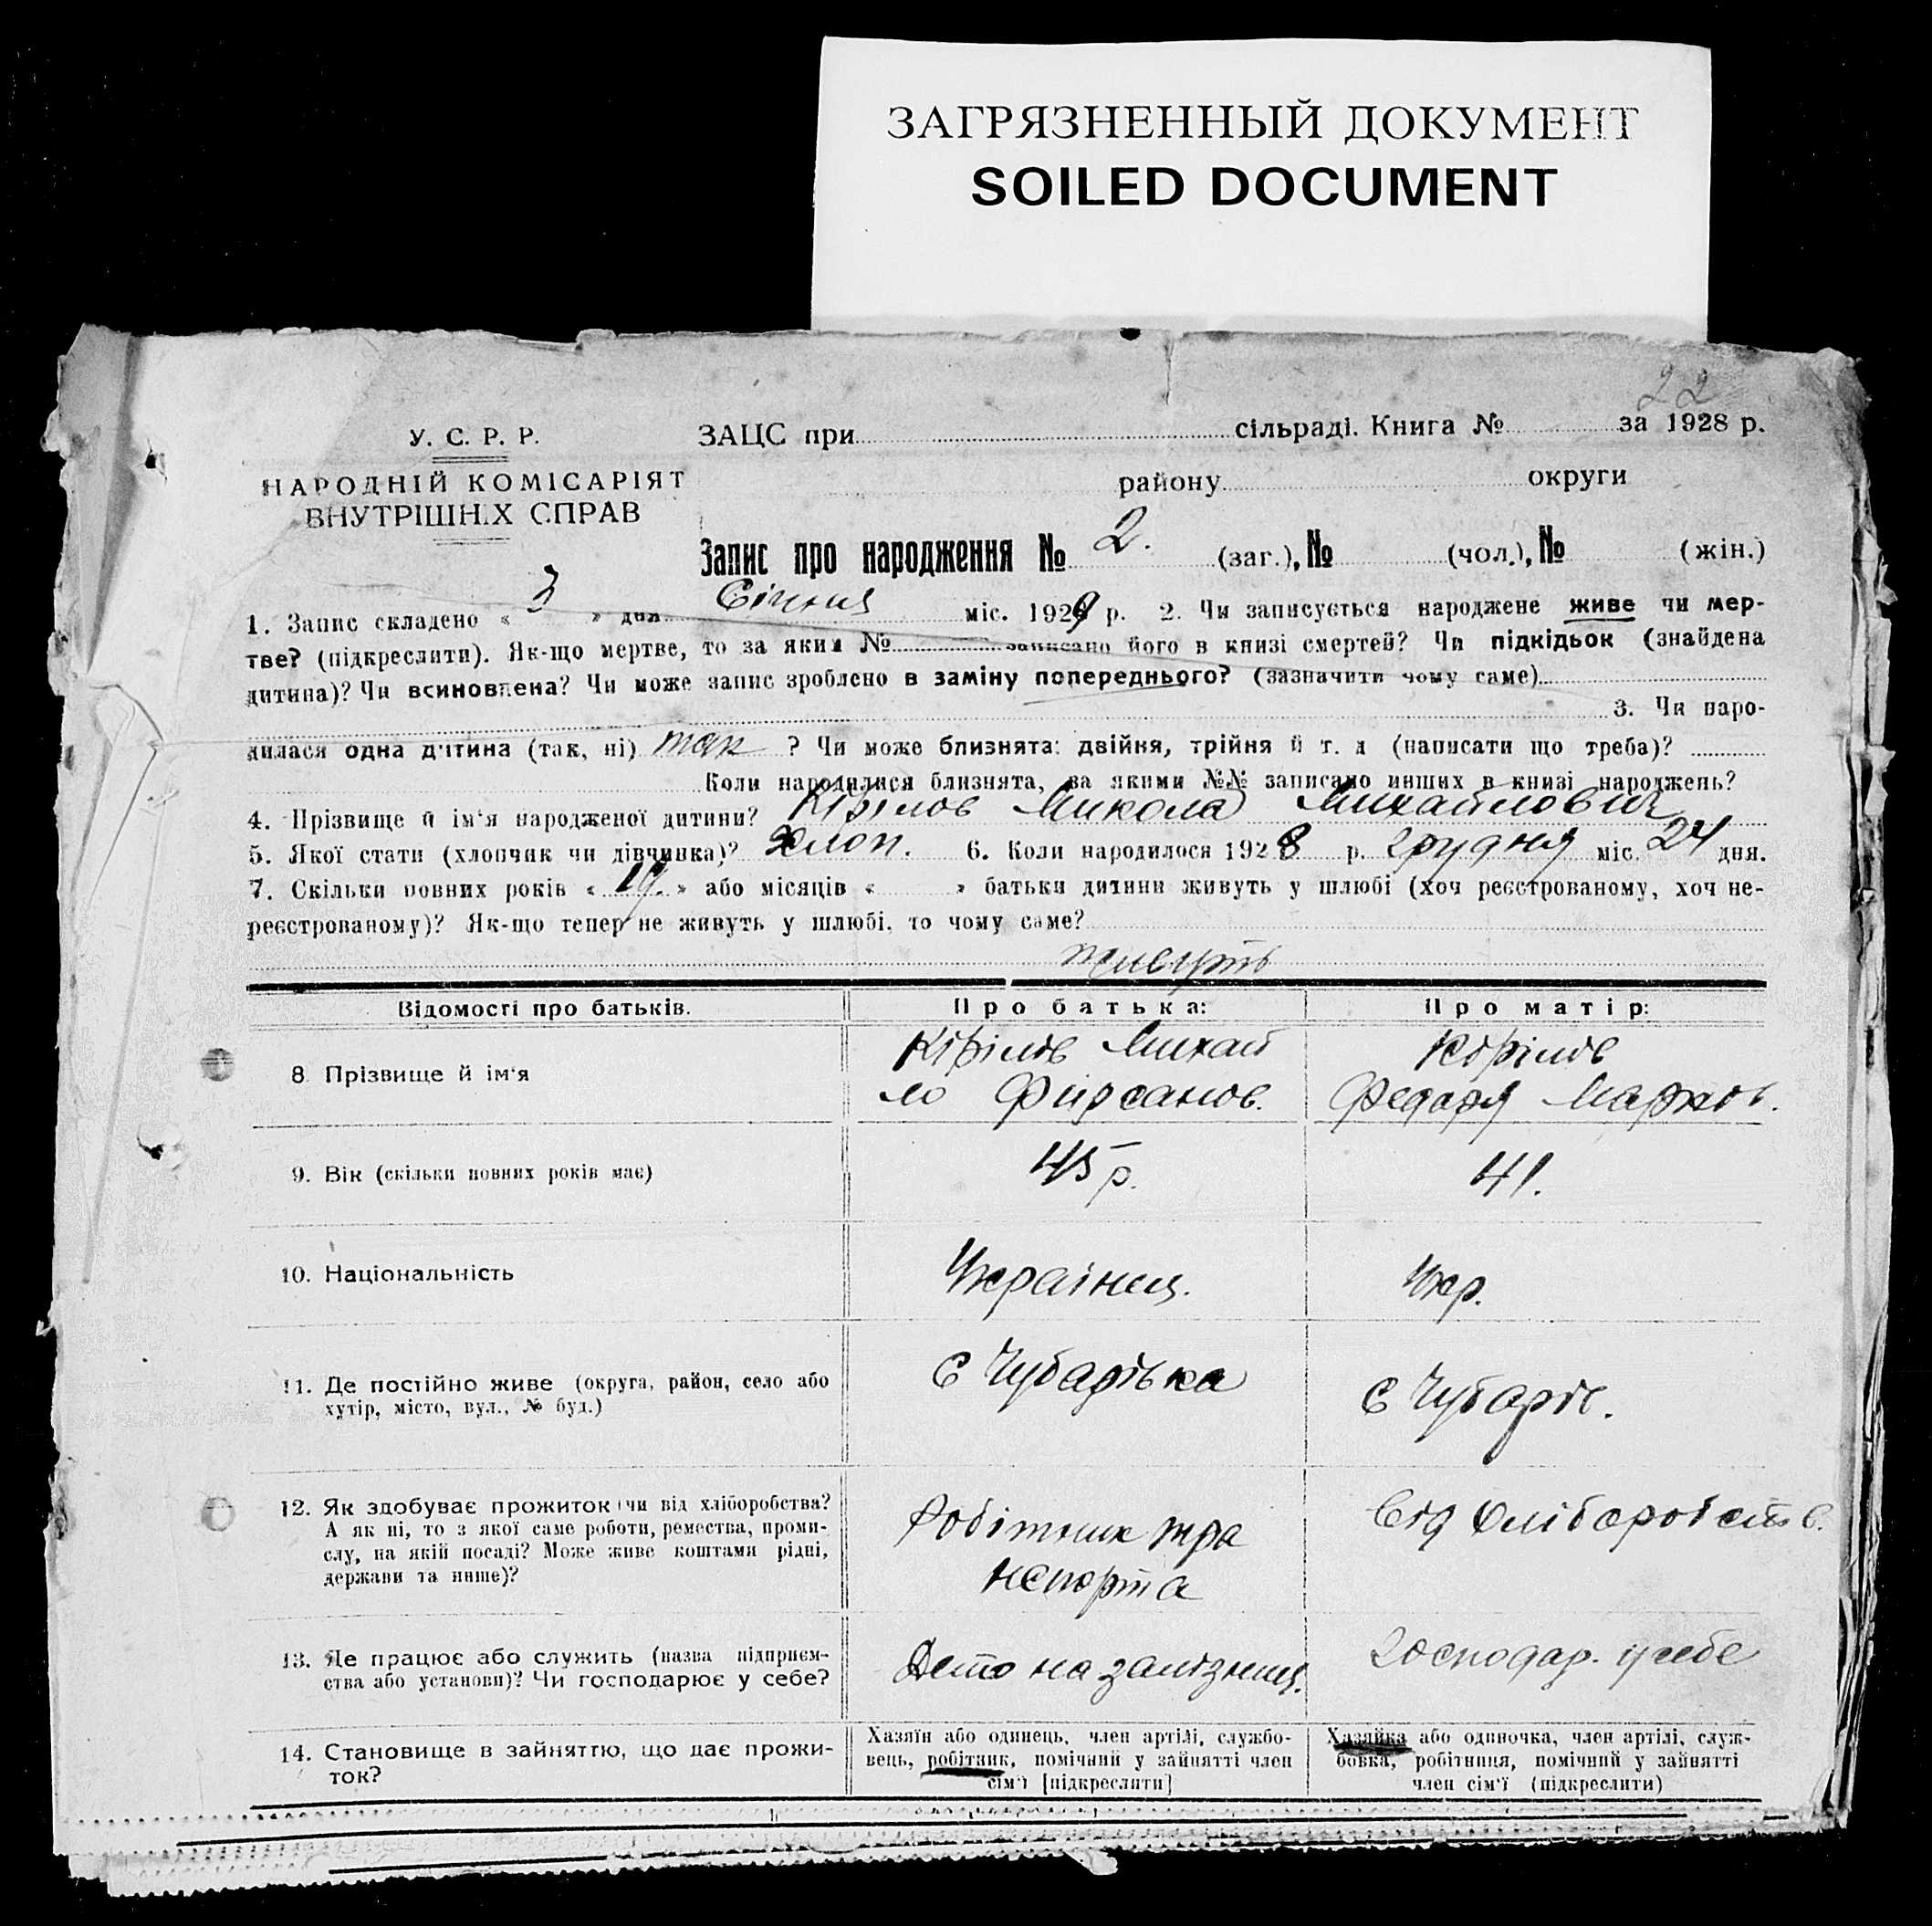 ЗАГРЯЗНЕННЫЙ ДОКУМЕНТ
SOILED DOCUMENT
22
У. С. Р. Р.
НАРОДНІЙ КОМІСАРІЯТ
ВНУТРІШНІХ СПРАВ
ЗАЦС при сільраді. Книга № за 1928 р.
району округи
Запис про народження № 2. (заг.), № (чол.), № (жін.)
1. Запис складено « 3 » дня Січня міс. 1929 р. 2. Чи записується народжене живе чи мер-
тве? (підкреслити). Як-що мертве, то за яким № записано його в книзі смертей? Чи підкідьок (знайдена
дитина)? Чи всиновлена? Чи може запис зроблено в заміну попереднього? (зазначити чому саме)
3. Чи наро-
дилася одна дитина (так, ні) так ? Чи може близнята: двійня, трійня й т. д (написати що треба)?
Коли народилися близнята, за якими №№ записано инших в книзі народжень?
4. Прізвище й ім'я народженої дитини? Кірілов Микола Михайлович
5. Якої стати (хлопчик чи дівчинка)? Хлоп. 6. Коли народилося 1928 р. грудня міс. 24 дня.
7. Скільки повних років « 19. » або місяців « » батьки дитини живуть у шлюбі (хоч реєстрованому, хоч не-
реєстрованому)? Як-що тепер не живуть у шлюбі, то чому саме?
живуть
Відомості про батьків. Про батька: Про матір:
8. Прізвище й ім'я
Кірілов Михай
ло Фирсанов.
Кірілов
Федора Марков.
9. Вік (скільки повних років має) 45 р. 41.
10. Національність Українец. Укр.
11. Де постійно живе (округа, район, село або
хутір, місто, вул., № буд.)
С Чубарівка
С Чубарів.
12. Як здобуває прожиток (чи від хліборобства?
А як ні, то з якої саме роботи, ремества, проми-
слу, на якій посаді? Може живе коштами рідні,
держави та инше)?
Робітник тра
нспорта
Від Хліборобств.
13. Де працює або служить (назва підприєм-
ства або установи)? Чи господарює у себе?
Депо на залізниц.
Господар. у себе
14. Становище в зайняттю, що дає прожи-
ток?
Хазяїн або одинець, член артілі, службо-
вець, робітник, помічний у зайнятті член
сім'ї [підкреслити]
Хазяйка або одиночка, член артілі, служ-
бовка, робітниця, помічний у зайнятті
член сім'ї (підкреслити)